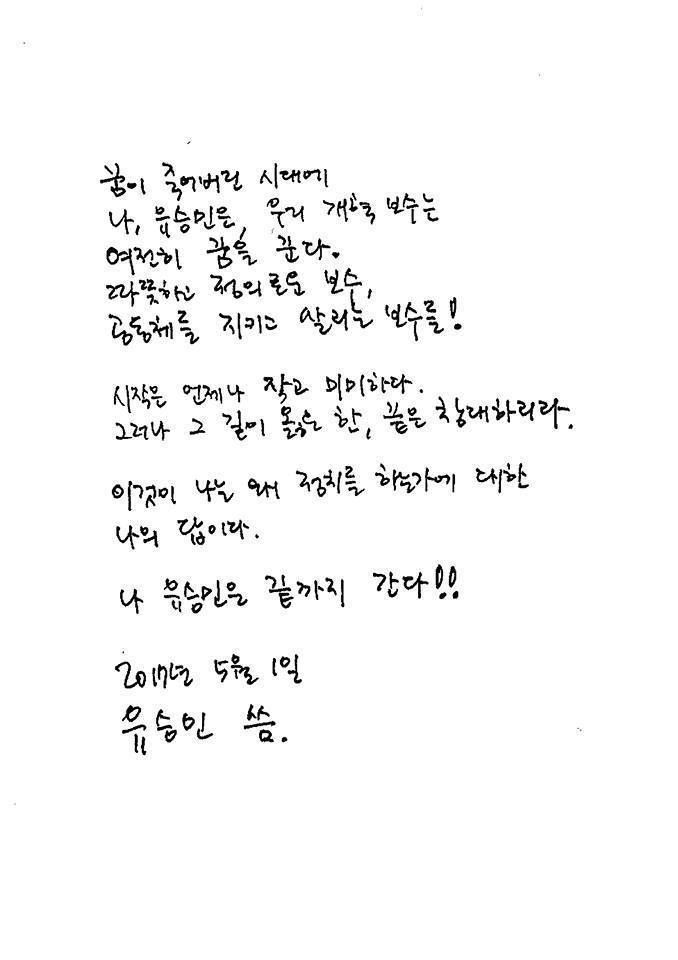 꿈이 죽어버린 시대에
나, 유승민은, 우리 개혁보수는
여전히 꿈을 꾼다.
따뜻하고 정의로운 보수,
공동체를 지키고 살리는 보수를!
시작은 언제나 작고 미미하다.
그러나 그 길이 옳은 한, 끝은 창대하리라.
이것이 나는 왜 정치를 하는가에 대한
나의 답이다.
나 유승민은 끝까지 간다!!
2017년 5월 1일
유승민 씀.